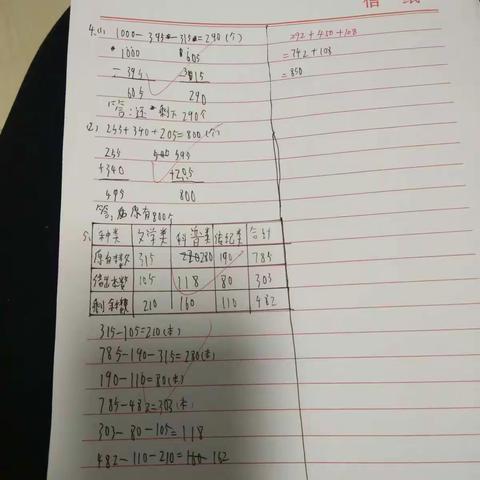 信 纸
4.(1) 1000-395-315=290(个)
1000 605
-395 315
605 290
答:还剩下290个
(2) 255+340+205=800(个)
255 595
+340 +205
595 800
答,原有800个
5、
种类 文学类 科普类 传纪类 合计
原有本数 315 280 190 785
借出本数 105 118 80 303
剩余本数 210 160 110 482
315-105=210(本)
785-190-315=280(本)
190-110=80(本)
785-482=303(本)
303-80-105=118
482-110-210=162
292+450+108
=742+108
=850